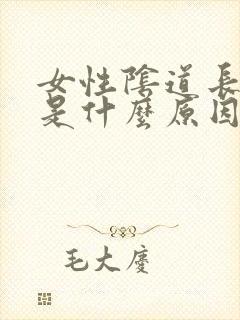 女性陰道長
是什麼原因
毛大慶